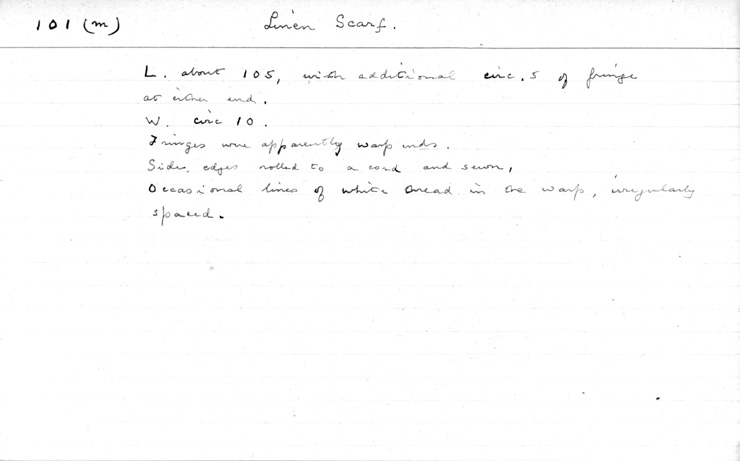 101 (m) Linen Scarf.
L. about 105, with additional circ. 5 of fringe
at either end.
W. circ 10.
Fringes were apparently warp ends.
Sides edges rolled to a cord and sewn,
Occasional lines of white thread in the warp, irregularly
spaced.